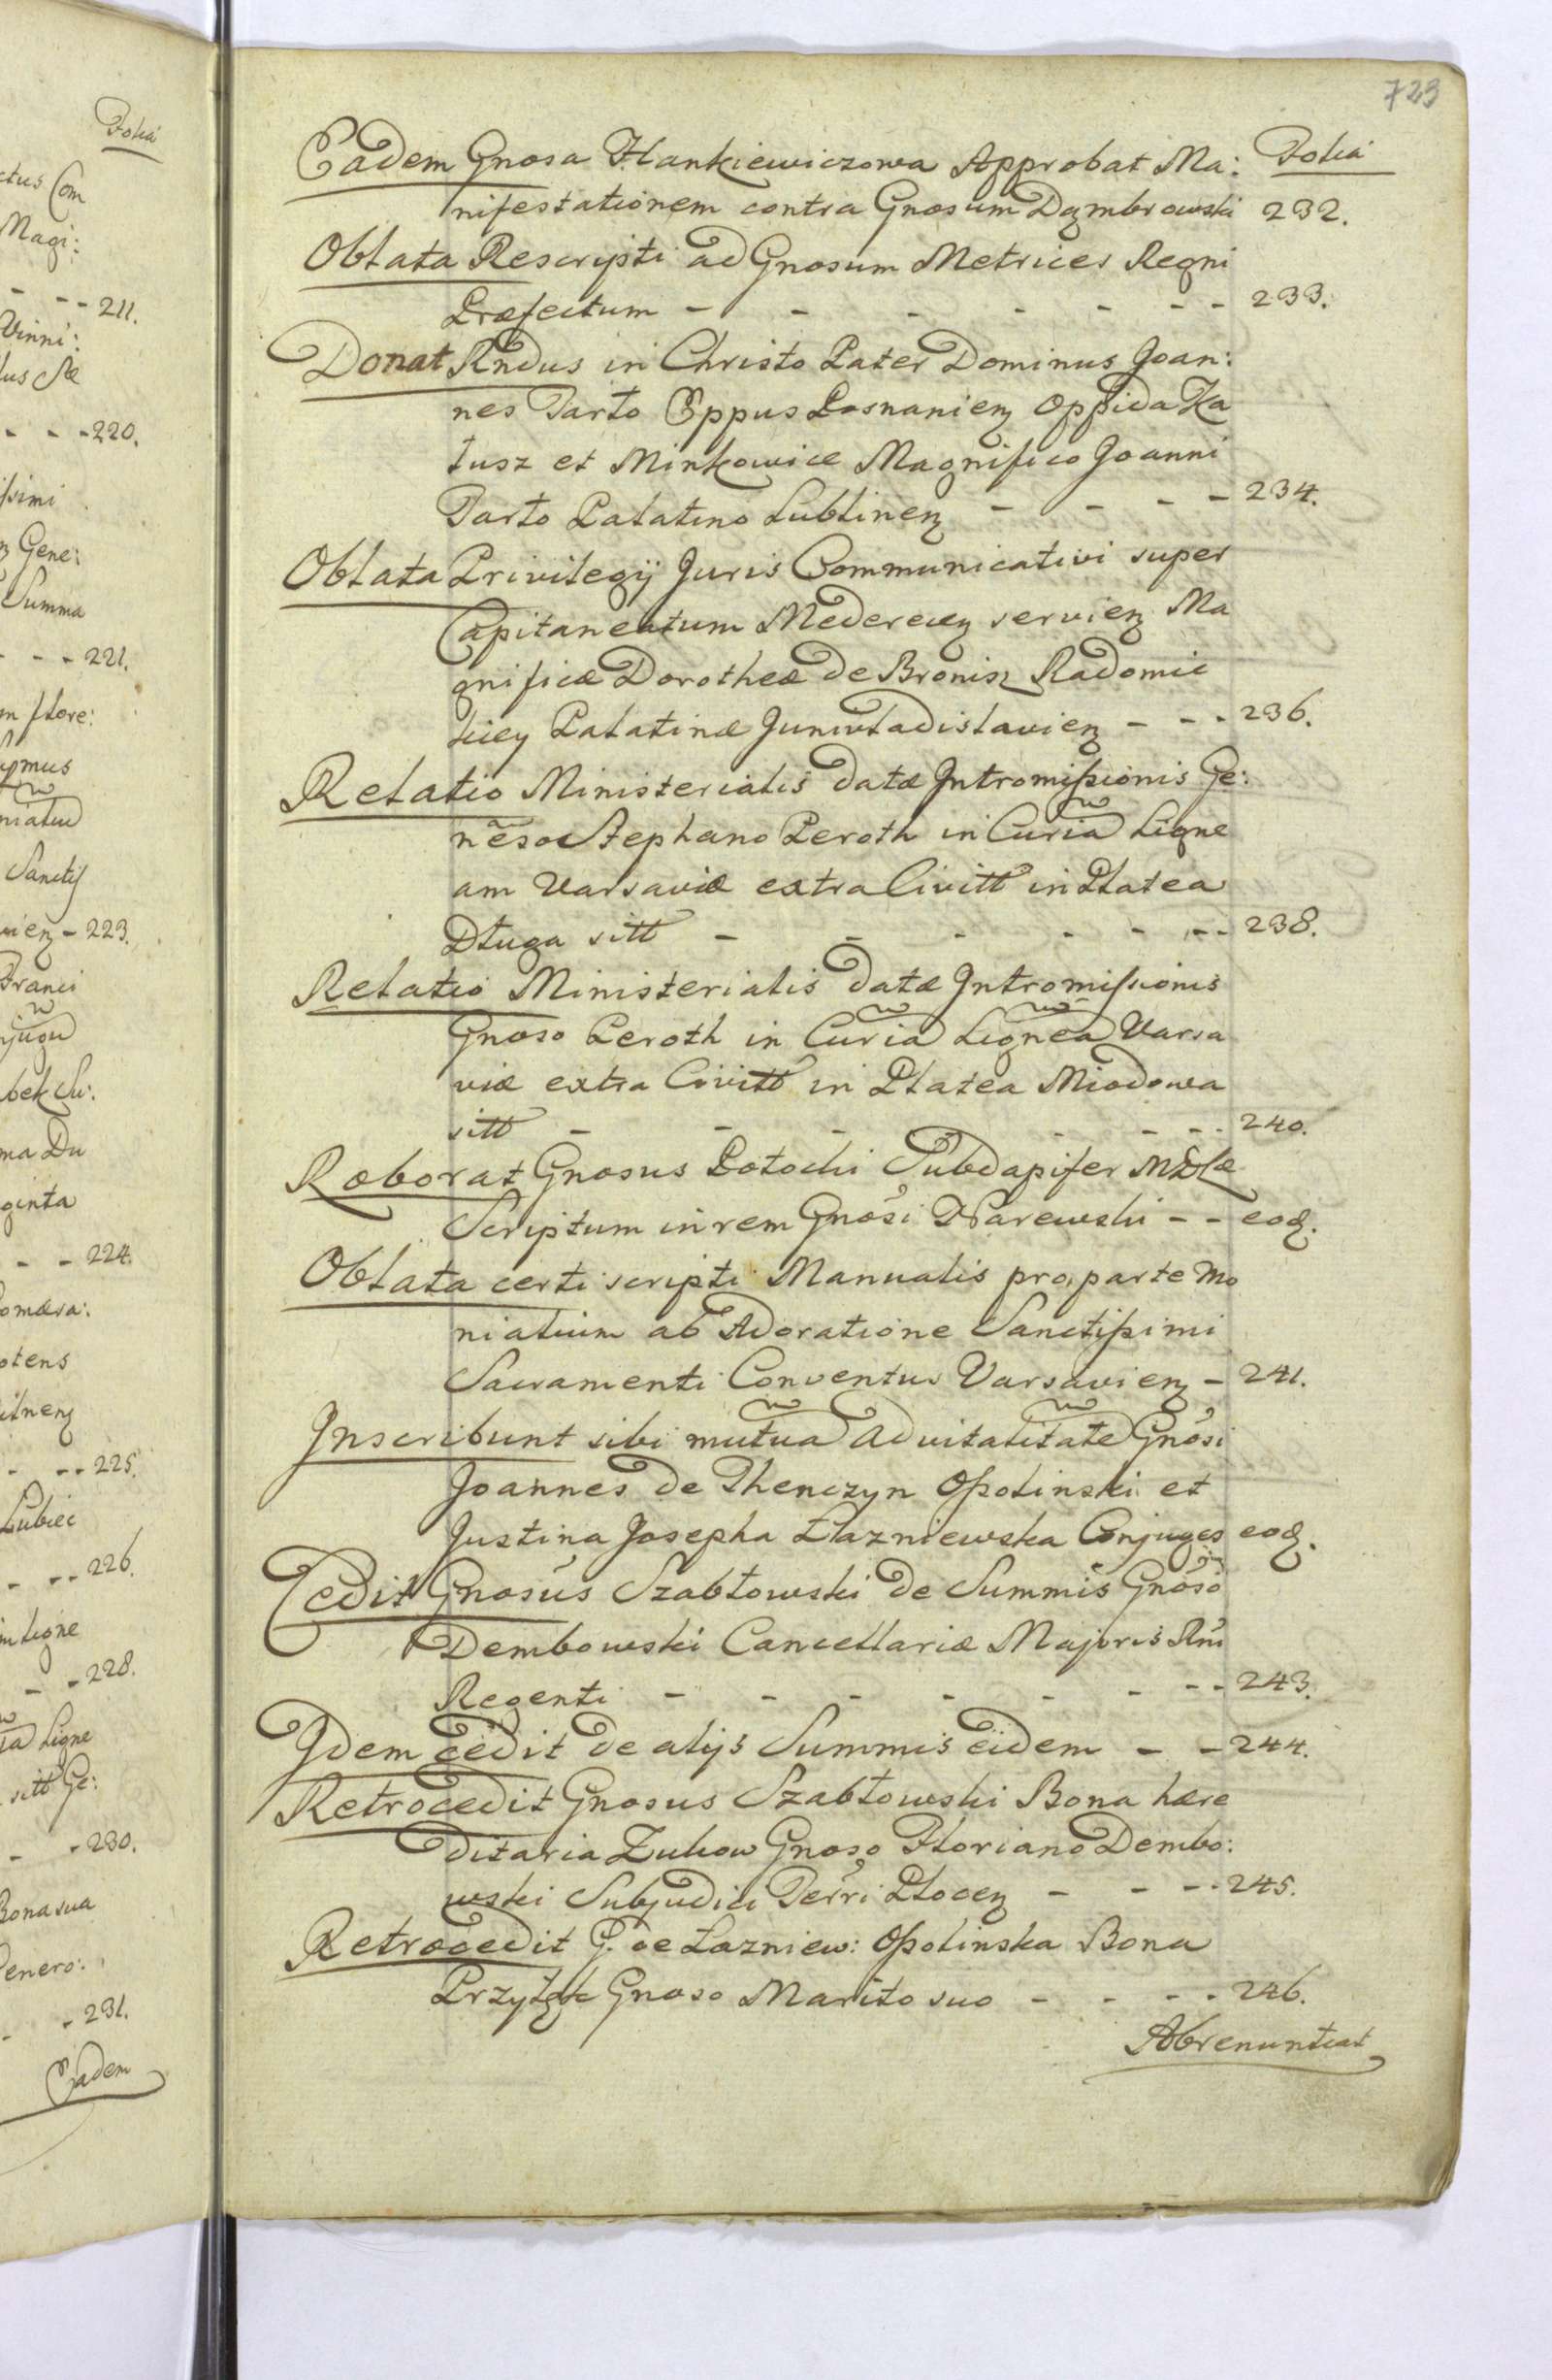 723
Folia
Eadem Gnosa Hankiewiczowa Approbat Ma:
nifestationem contra Gnosum Dąmbrowski 232.
Oblata Rescripti ad Gnosum Metrices Regni
Præfectum - - - - - - - 233.
Donat Rndus in Christo Pater Dominus Joan:
nes Tarło Eppus Posnanien Oppida Ka
łusz et Minkowice Magnifico Joanni
Tarło Palatino Lublinen - - - - 234.
Oblata Privilegij Juris Communicativi super
Capitaneatum Mederecen servien Ma
gnificæ Dorotheæ De Bronisz Radomic
kiey Palatinæ Juniwladislavien - - - 236.
Relatio Ministerialis datæ Intromissionis Ge:
nẽso Stephano Peroth in Curia Ligne
am Varsaviæ extra Civitt in Platea
Długa sitt - - - - - - - 238.
Relatio Ministerialis datæ Intromissionis
Gnoso Peroth in Curia Lignea Varsa
viæ extra Civitt in Platea Miodowa
sitt - - - - - - - 240.
Roborat Gnosus Potocki Subdapifer
Scriptum in rem Gnosi Narewski - - eod.
Oblata certi scripti Manualis pro parte Mo
nialium ab Adoratione Sanctissimi
Sacramenti Conventus Varsavien - 241.
Inscribunt sibi mutua advitalitate Gnosi
Joannes De Thenczyn Ossolinski et
Justina Josepha Łazniewska Conjuges eod.
Cedit Gnosus Szabłowski de Summis Gnoso
Dembowski Cancellariæ Majoris Rni
Regenti - - - - - - - 243.
Idem cedit de alijs Summis eidem - - 244.
Retrocedit Gnosus Szabłowski Bona hære
ditaria Zukow Gnoso Floriano Dembo:
wski Subjudici Terri Plocen - - - 245.
Retrocedit G. de Łazniew: Ossolinska Bona
Przytyk Gnoso Marito suo - - - - 246.
Abrenuntiat